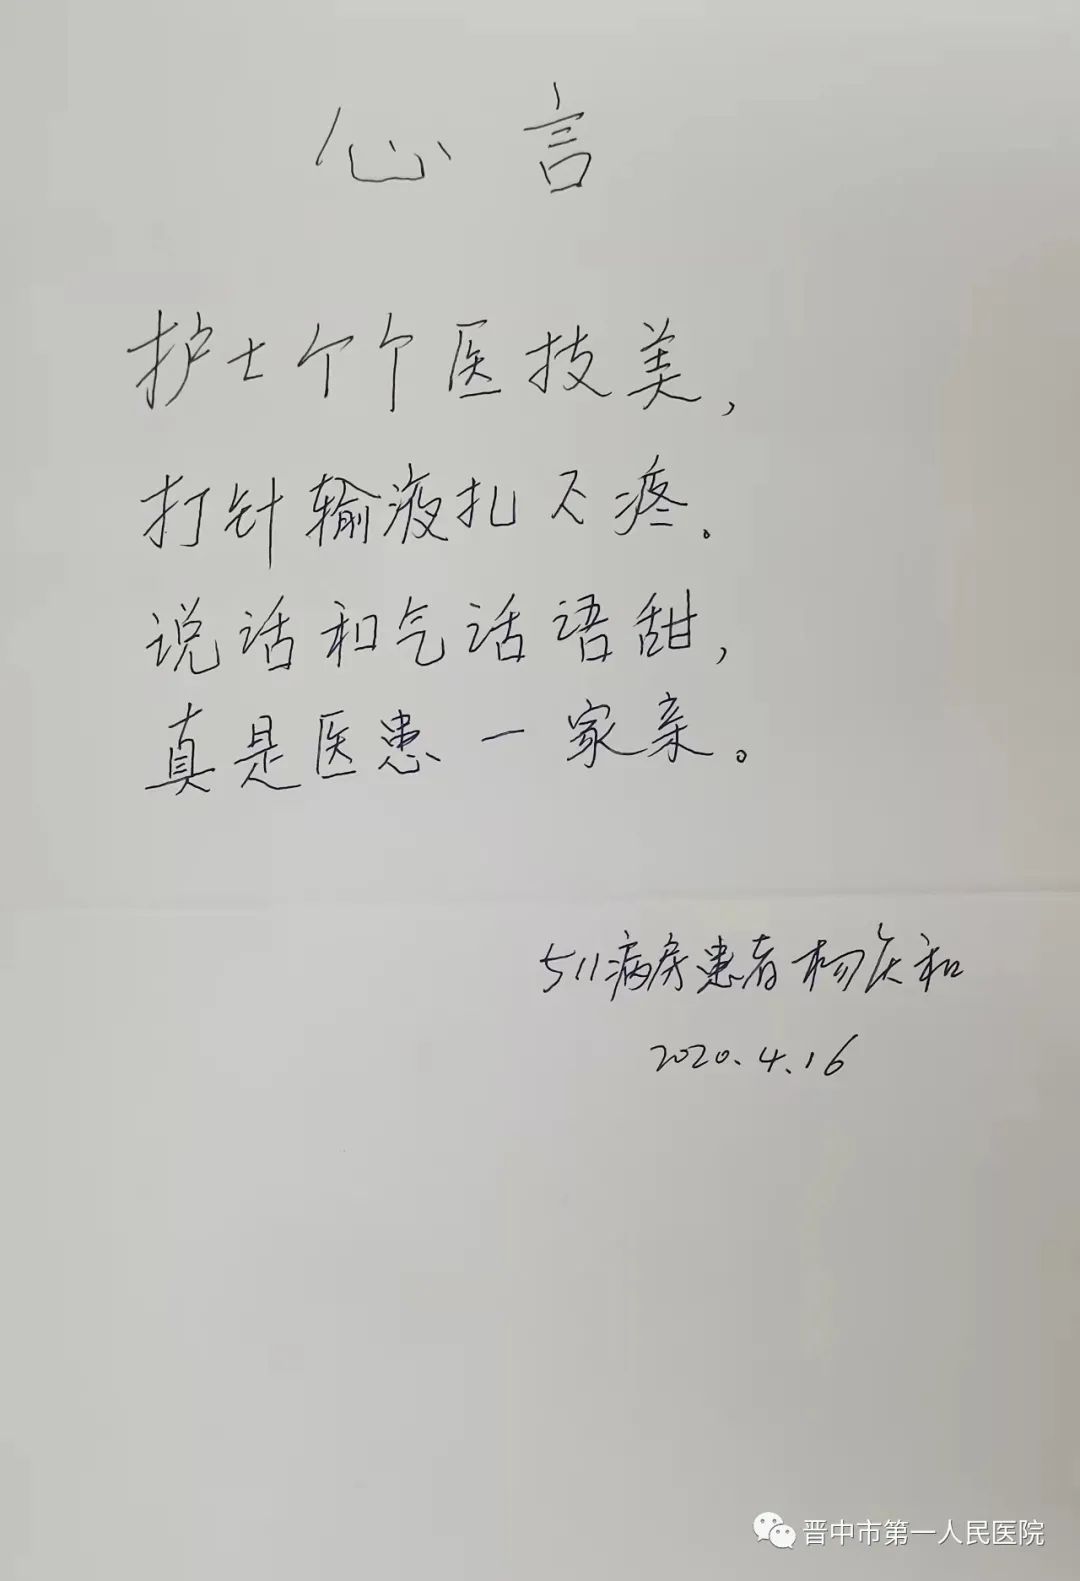 心言
护士个个医技美，
打针输液扎不疼。
说话和气话语甜，
真是医患一家亲。
511病房患者杨庆和
2020.4.16
晋中市第一人民医院